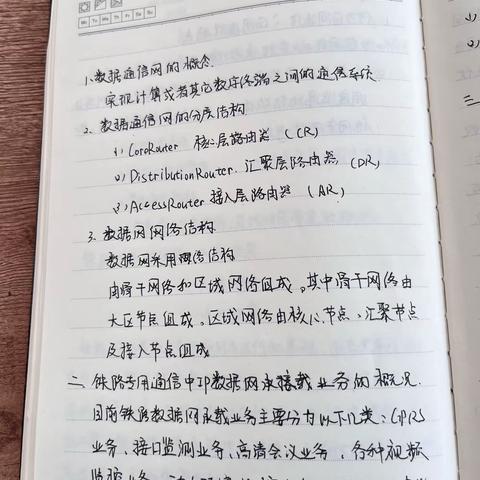 Mo Tu We Th Fr Sa Su
1. 数据通信网的概念
实现计算或者其它数字终端之间的通信系统
2. 数据通信网的分层结构
(1) CoroRouter 核心层路由器 (CR)
(2) DistributionRouter. 汇聚层路由器 (DR)
(3) AccessRouter 接入层路由器 (AR)
3. 数据网网络结构
数据网采用网络结构
由骨干网络和区域网络组成。其中骨干网络由
大区节点组成。区域网络由核心节点、汇聚节点
及接入节点组成
二、铁路专用通信中IP数据网承接载业务的概况.
目前铁路数据网承载业务主要分为以下几类: GPRS
业务、接口监测业务、高清会议业务、各种视频
监控业务